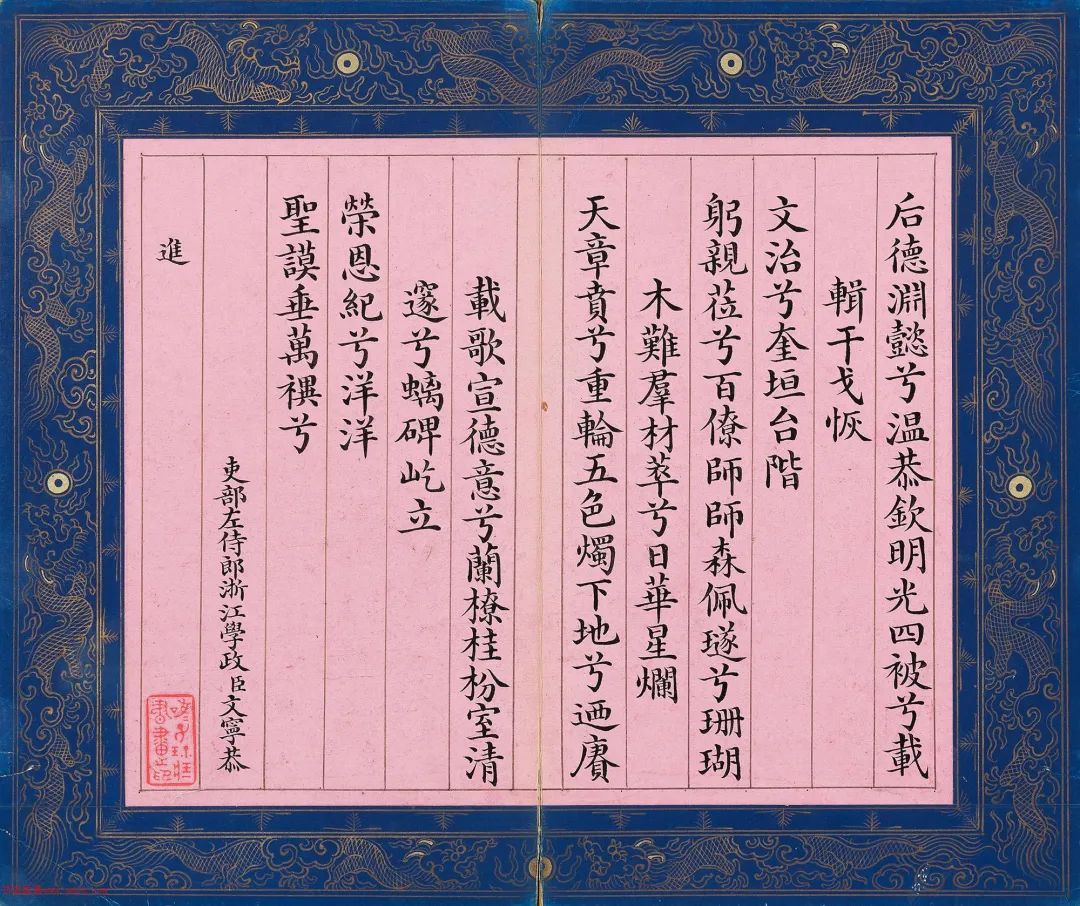 后德淵懿兮温恭欽明光四被兮載
輯干戈恢
文治兮奎垣台階
躬親莅兮百僚師師森佩璲兮珊瑚
木難羣材萃兮日華星爛
天章賁兮重輪五色燭下地兮迺賡
載歌宣德意兮蘭橑桂枌室清
邃兮螭碑屹立
榮恩紀兮洋洋
聖謨垂萬禩兮
吏部左侍郎浙江學政臣文寧恭
進